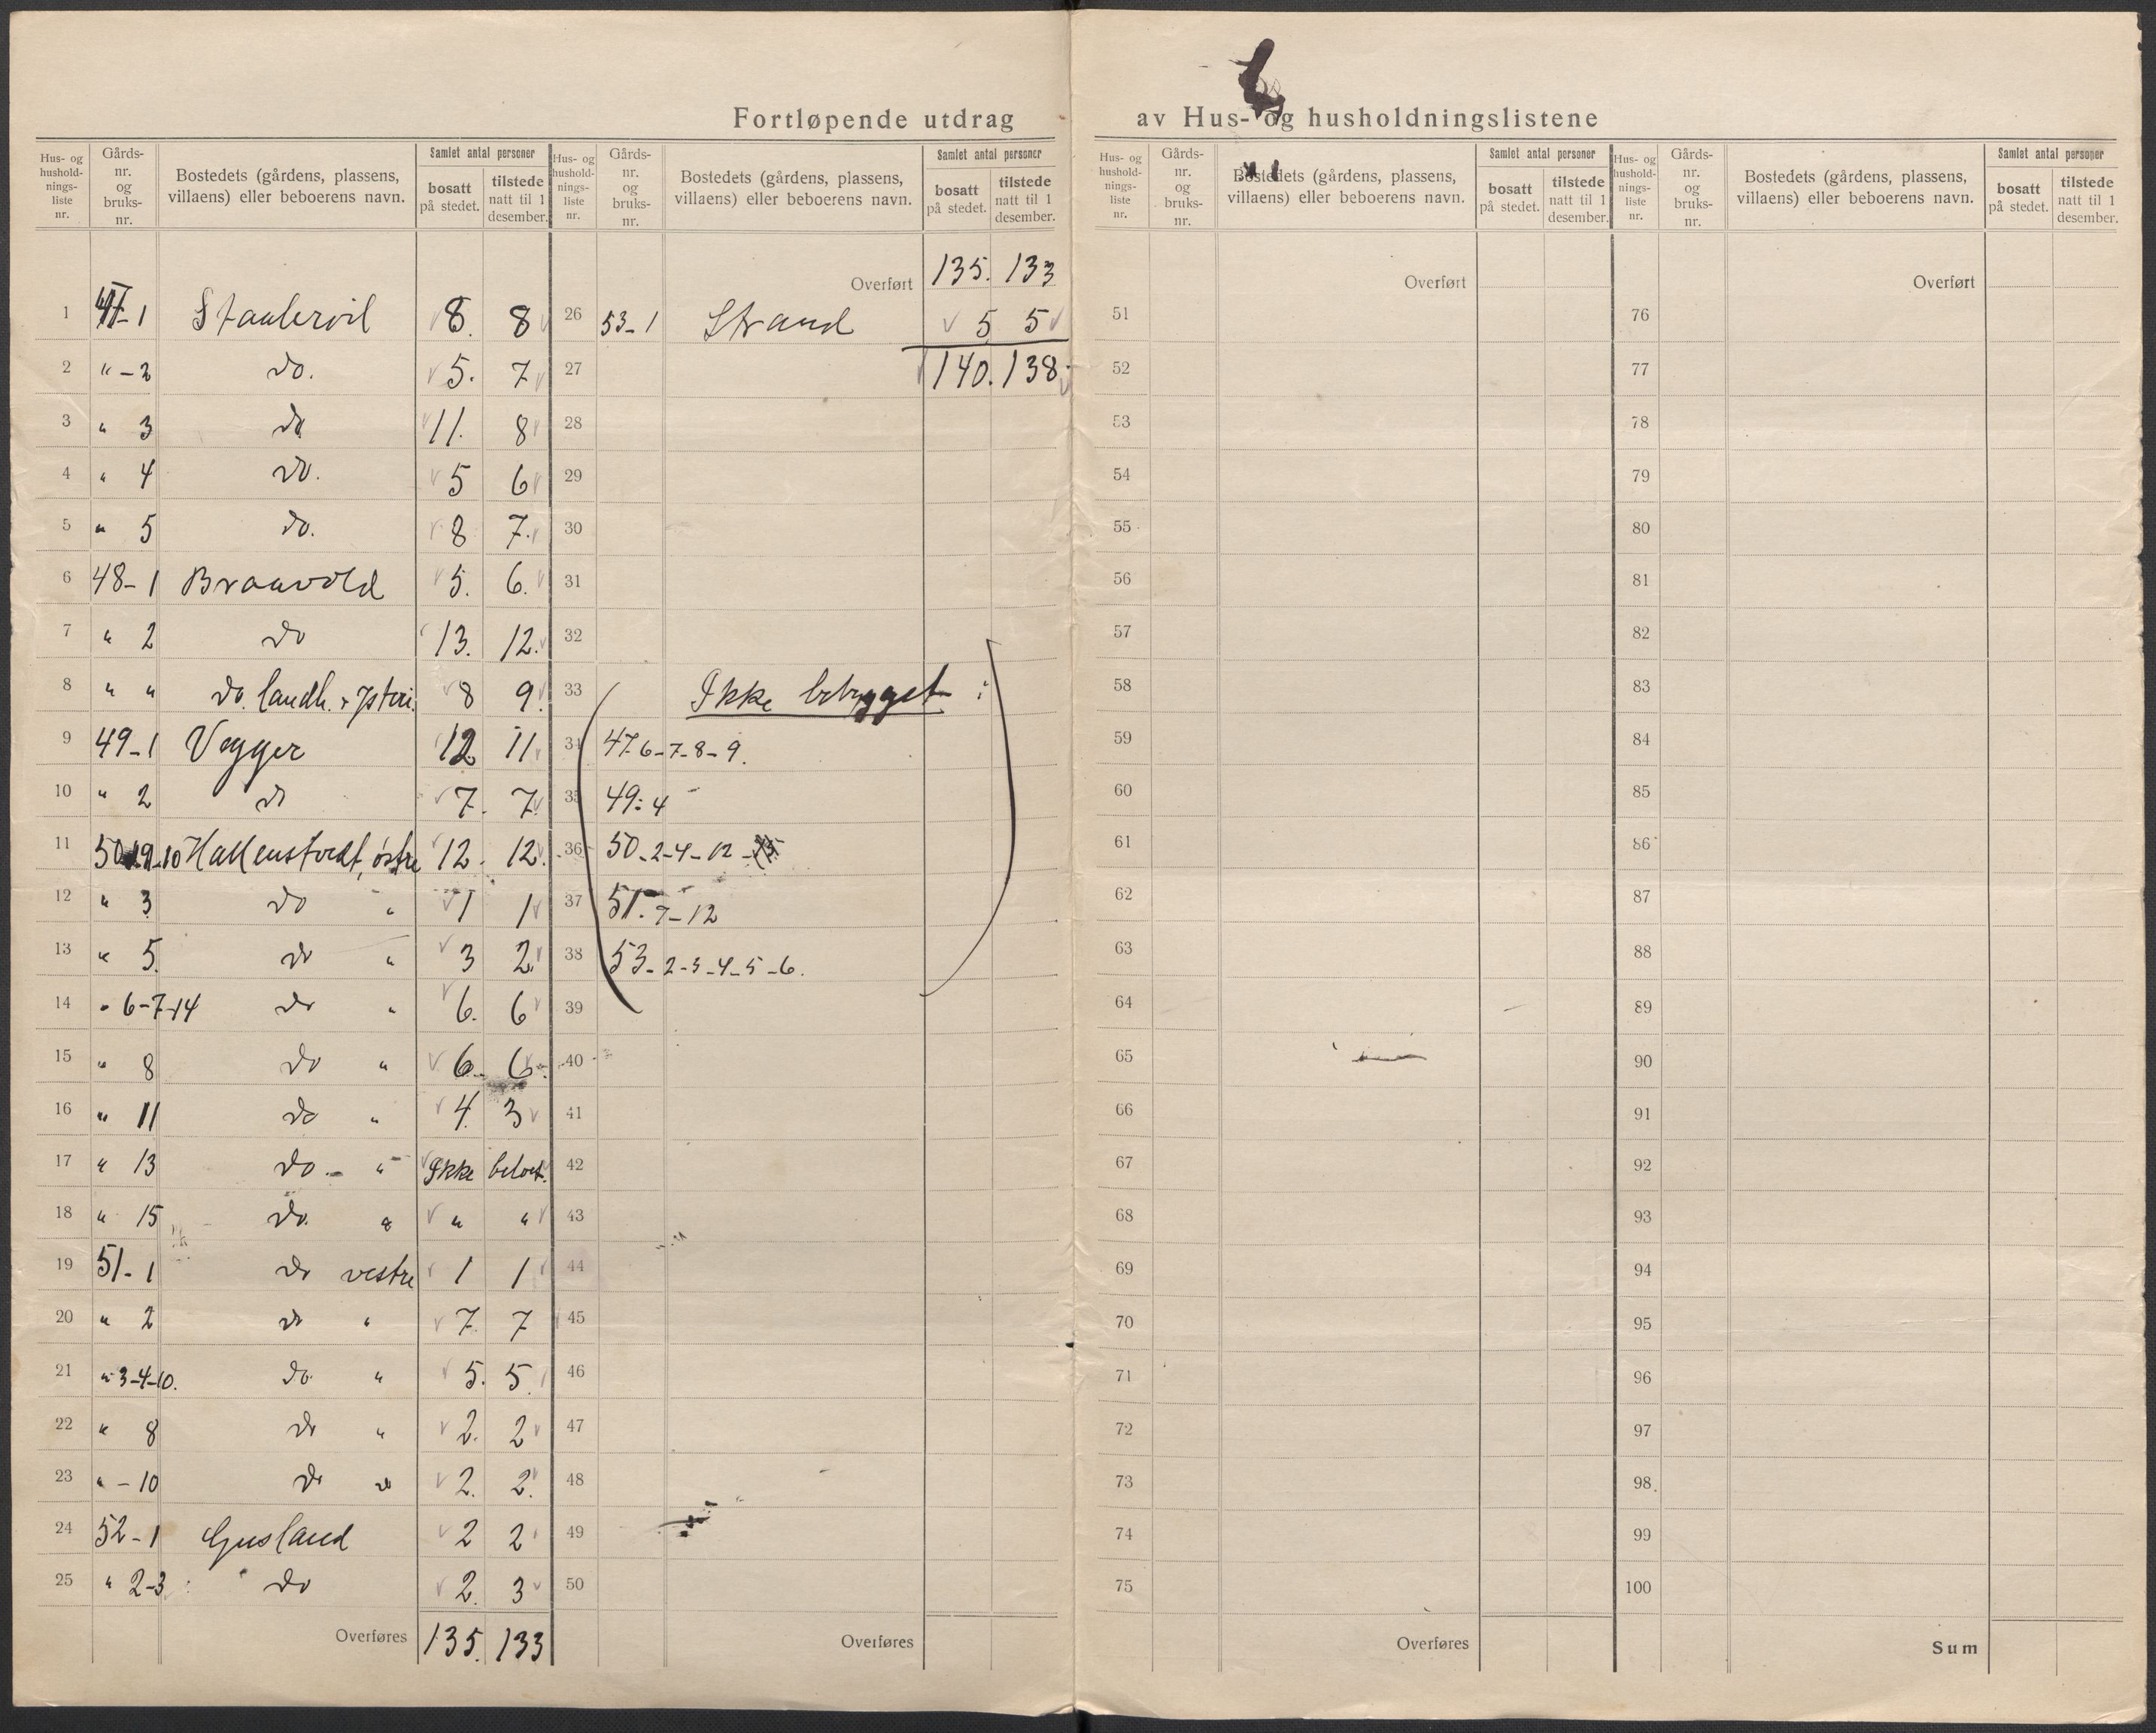 Fortløpende utdrag av Hus- og husholdningslistene
Hus- og husholdningsliste nr. | Gårdsnr. og bruksnr. | Bostedets (gårdens, plassens, villaens) eller beboerens navn. | Samlet antal personer | bosatt på stedet. | tilstede natt til 1 desember.
1 47-1 Staalervil 8. 8
2 " - 2 do. 5. 7
3 " 3 do 11. 8
4 " 4 do. 5 6
5 " 5 do. 8 7.
6 48-1 Braavold 5. 6.
7 " 2 do 13. 12.
8 " " do. landh. + Ysteri. 8 9.
9 49-1 Vegger 12 11
10 " 2 do 7. 7
11 50 1-9-10 Hallenstvedt, østre 12. 12.
12 " 3 do " 1 1
13 " 5. do " 3 2
14 " 6-7-14 do " 6. 6
15 " 8 do " 6 6
16 " 11 do " 4. 3
17 " 13 do. " Ikke beboet.
18 " 15 do. " " "
19 51-1 do vestre 1 1
20 " 2 do " 7. 7
21 " 3-4-10. do. " 5. 5.
22 " 8 do " 2. 2
23 " - 10 do " 2. 2.
24 52-1 Gusland 2 2
25 " 2-3 do 2. 3
Overføres 135. 133
Hus- og husholdningsliste nr. | Gårdsnr. og bruksnr. | Bostedets (gårdens, plassens, villaens) eller beboerens navn. | Samlet antal personer | bosatt på stedet. | tilstede natt til 1 desember.
Overført 135. 133
26 53-1 Strand 5 5
27 140. 138
28
29
30
31
32
33 Ikke bebygget :
34 47-6-7-8-9.
35 49: 4
36 50-2-4-12
37 51. 7-12
38 53-2-3-4-5-6.
39
40
41
42
43
44
45
46
47
48
49
50
Overføres
Hus- og husholdningsliste nr. | Gårdsnr. og bruksnr. | Bostedets (gårdens, plassens, villaens) eller beboerens navn. | Samlet antal personer | bosatt på stedet. | tilstede natt til 1 desember.
Overført
51
52
53
54
55
56
57
58
59
60
61
62
63
64
65
66
67
68
69
70
71
72
73
74
75
Overføres
Hus- og husholdningsliste nr. | Gårdsnr. og bruksnr. | Bostedets (gårdens, plassens, villaens) eller beboerens navn. | Samlet antal personer | bosatt på stedet. | tilstede natt til 1 desember.
Overført
76
77
78
79
80
81
82
83
84
85
86
87
88
89
90
91
92
93
94
95
96
97
98
99
100
Sum